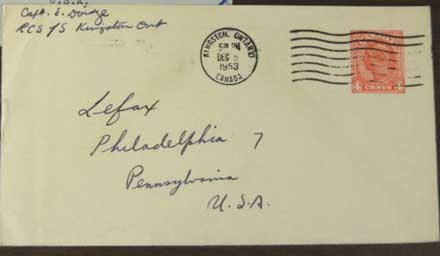 U.S.A.
Capt. E. Dodge
RCS of S Kingston Ont
KINGSTON, ONTARIO
PM
DEC
1953
CANADA
CANADA
4 CENTS 4
Lefax
Philadelphia 7
Pennsylvania
U.S.A.